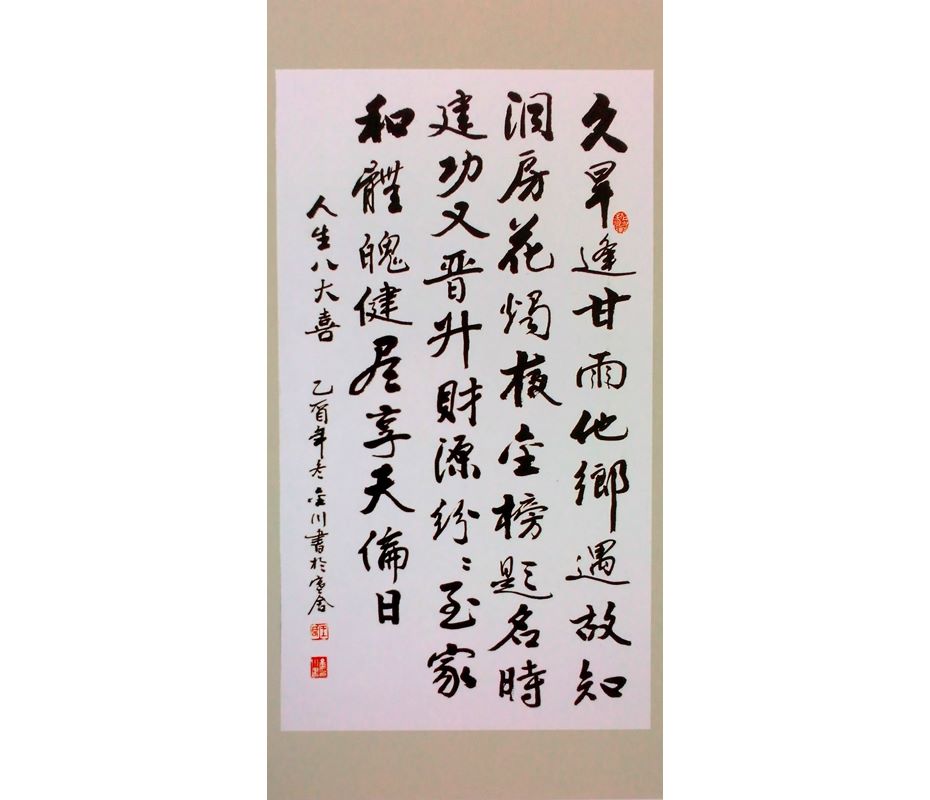 久旱逢甘雨他鄉遇故知
洞房花燭夜金榜題名時
建功又晋升財源紛〻至家
和體魄健尽享天倫日
人生八大喜 乙酉年冬金川書於寒舍